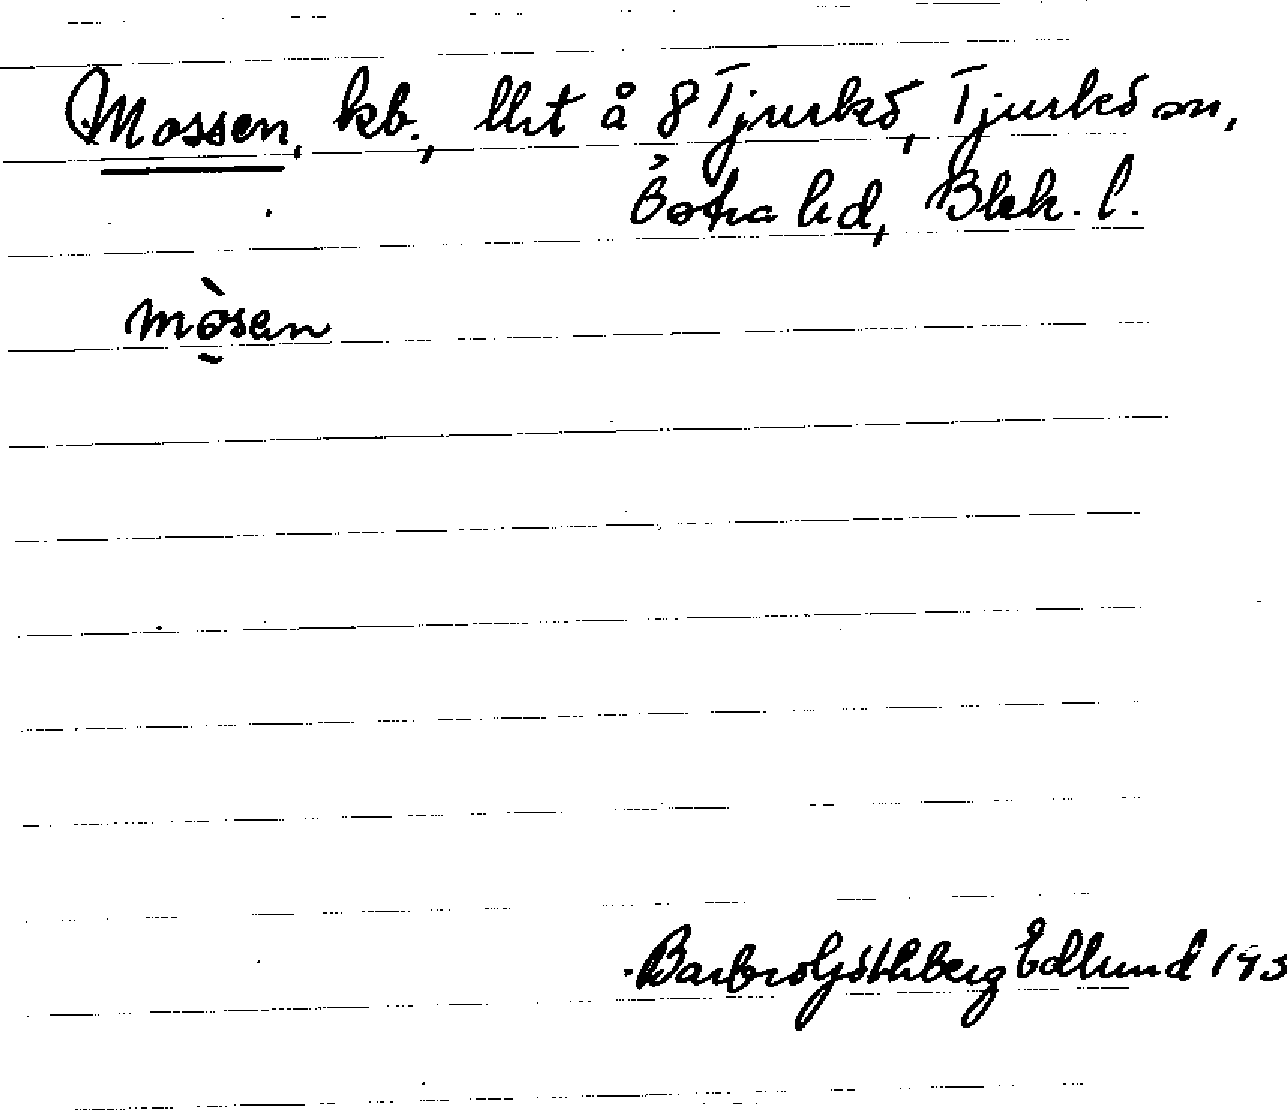 Mossen, kb., lht å 8 Tjurkö, Tjurkö sn,
Östra hd, Blek. l.
mò̰sen
Barbro Göthberg Edlund 195